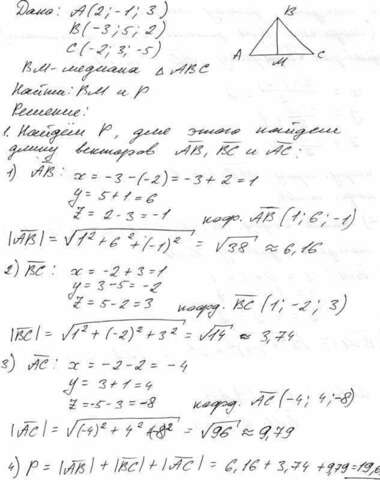 Дано: A(2; -1; 3)
B(-3; 5; 2)
C(-2; 3; -5)
BM - медиана △ ABC
Найти: BM и P
Решение:
B
A
M
C
1. Найдём P, для этого найдем
длину векторов A̅B̅, B̅C̅ и A̅C̅:
1) A̅B̅: x = -3-(-2) = -3+2 = 1
y = 5+1 = 6
z = 2-3 = -1 коорд. A̅B̅ (1; 6; -1)
|A̅B̅| = √(1² + 6² + (-1)²) = √38 ≈ 6,16
2) B̅C̅: x = -2+3 = 1
y = 3-5 = -2
z = 5-2 = 3 коорд. B̅C̅ (1; -2; 3)
|B̅C̅| = √(1² + (-2)² + 3²) = √14 ≈ 3,74
3) A̅C̅: x = -2-2 = -4
y = 3+1 = 4
z = -5-3 = -8 коорд. A̅C̅ (-4; 4; -8)
|A̅C̅| = √((-4)² + 4² + 8²) = √96 ≈ 9,79
4) P = |A̅B̅| + |B̅C̅| + |A̅C̅| = 6,16 + 3,74 + 9,79 = 19,6